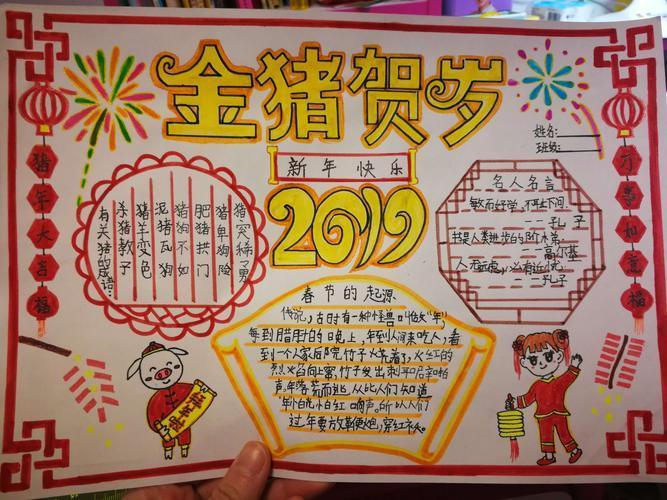 金猪贺岁
姓名:
班级:
新年 快乐
2019
猪年大吉
福
万事如意
福
有关猪的成语:
杀猪教子
猪羊变色
泥猪瓦狗
猪狗不如
肥猪拱门
猪卑狗险
猪突 勇
名人名言
敏而好学,不耻下问。
——孔子
书是人类进步的阶梯。
——高尔基
人无远虑,必有近忧。
——孔子
春节的起源
传说,古时有一种怪兽叫做"年",
每到腊月的晚上,年到人间来吃人,看
到一个人家后院竹子火 着,火红的
烈火焰向上窜,竹子发出 啪
声年落荒而逃,从此人们知道
年怕光怕红 响声。所以人们
过年要放鞭炮,穿红衣。